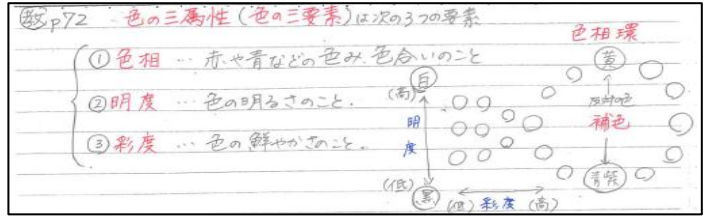 教p72 色の三属性(色の三要素)は次の3つの要素
①色相 … 赤や青などの色み、色合いのこと
②明度 … 色の明るさのこと.
③彩度 … 色の鮮やかさのこと.
白
(高)
明度
(低)
黒
(低) 彩度 (高)
色相環
黄
反対の色
補色
青紫